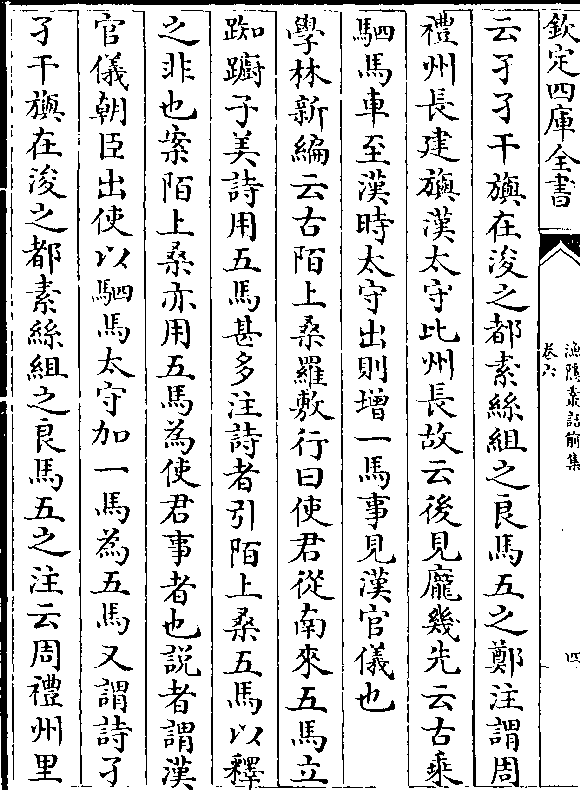 欽定四庫全書
漁隱叢話前集
卷六
四
云孑孑干旟在浚之都素絲組之良馬五之鄭注謂周
禮州長建旟漢太守比州長故云後見龐幾先云古乘
駟馬車至漢時太守出則增一馬事見漢官儀也
學林新編云古陌上桑羅敷行曰使君從南來五馬立
踟躕子美詩用五馬甚多注詩者引陌上桑五馬以釋
之非也案陌上桑亦用五馬為使君事者也説者謂漢
官儀朝臣出使以駟馬太守加一馬為五馬又謂詩孑
孑干旟在浚之都素絲組之良馬五之注云周禮州里